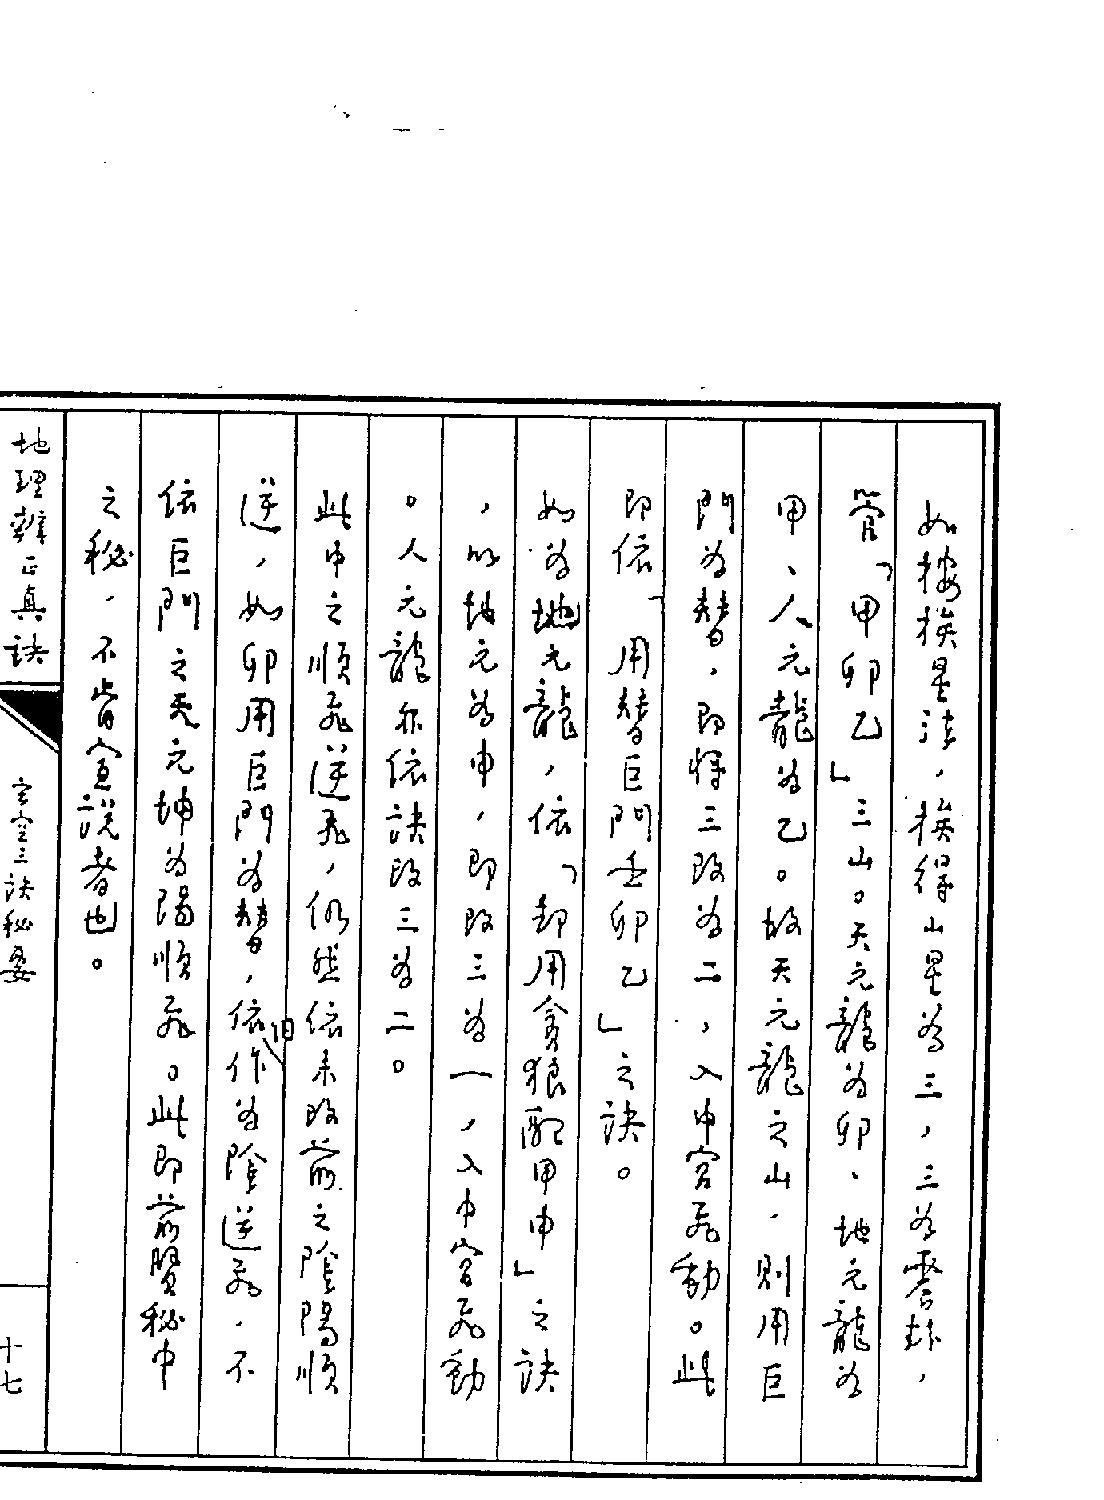 如按挨星法，挨得山星為三，三為震卦，
管「甲卯乙」三山。天元龍為卯、地元龍為
甲、人元龍為乙。故天元龍之山，則用巨
門為替，即將三改為二，入中宮飛動。此
即依「用替巨門壬卯乙」之訣。
如為地元龍，依「却用貪狼配甲申」之訣
，以地元為申，即改三為一，入中宮飛動
。人元龍亦依訣改三為二。
此中之順飛逆飛，仍然依未改前之陰陽順
逆，如卯用巨門為替，依旧作為陰逆飛，不
依巨門之天元坤為陽順飛。此即前賢秘中
之秘，不肯宣說者也。
地理辨正真訣
玄空三訣秘要
十七